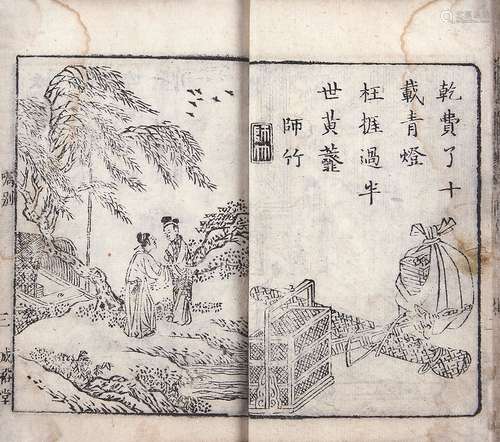 乾費了十
載青燈
枉捱過半
世黃虀
師竹
二
成裕堂